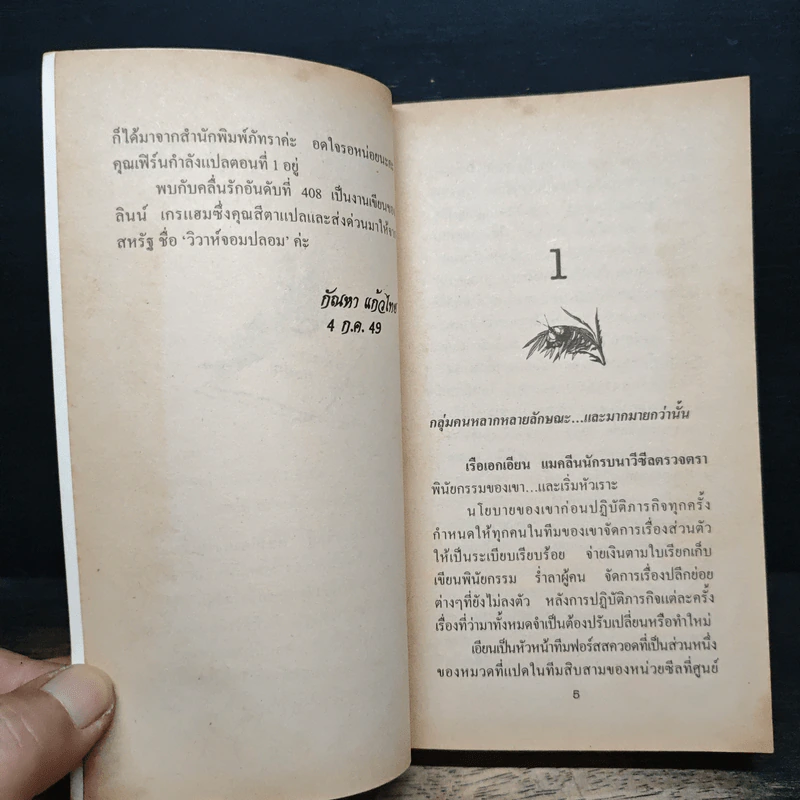 ก็ได้มาจากสำนักพิมพ์ภัทราค่ะ อดใจรอหน่อยนะคะ
คุณเฟิร์นกำลังแปลตอนที่ 1 อยู่
พบกับคลื่นรักอันดับที่ 408 เป็นงานเขียนของ
ลินน์ เกรแฮมซึ่งคุณสีตาแปลและส่งด่วนมาให้จาก
สหรัฐ ชื่อ ‘วิวาห์จอมปลอม’ ค่ะ
กัณหา แก้วไทย
4 ก.ค. 49
1
กลุ่มคนหลากหลายลักษณะ...และมากมายกว่านั้น
เรือเอกเอียน แมคลีนนักรบนาวีซีลตรวจตรา
พินัยกรรมของเขา...และเริ่มหัวเราะ
นโยบายของเขาก่อนปฏิบัติภารกิจทุกครั้ง
กำหนดให้ทุกคนในทีมของเขาจัดการเรื่องส่วนตัว
ให้เป็นระเบียบเรียบร้อย จ่ายเงินตามใบเรียกเก็บ
เขียนพินัยกรรม ร่ำลาผู้คน จัดการเรื่องปลีกย่อย
ต่างๆที่ยังไม่ลงตัว หลังการปฏิบัติภารกิจแต่ละครั้ง
เรื่องที่ว่ามาทั้งหมดจำเป็นต้องปรับเปลี่ยนหรือทำใหม่
เอียนเป็นหัวหน้าทีมฟอร์สสควอดที่เป็นส่วนหนึ่ง
ของหมวดที่แปดในทีมสิบสามของหน่วยซีลที่ศูนย์
5